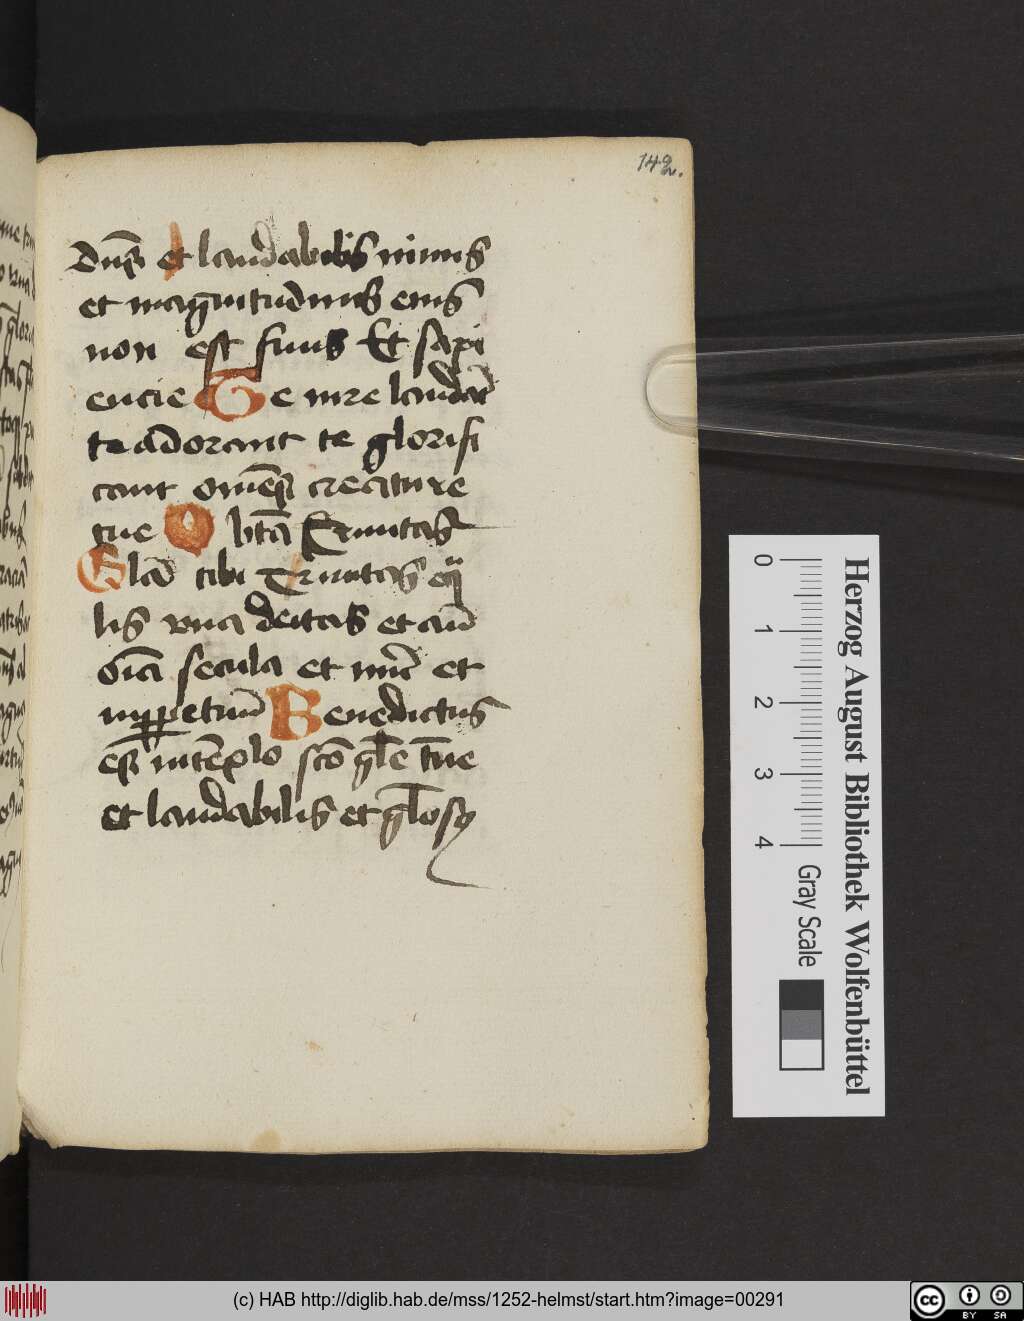 142.
Dns et laudabilis nimis
et magnitudinis eius
non est finis Et sapi
encie Te iure laudāt
te adorant te glorifi
cant omēs creature
tue O btā Trinitas
Glā tibi Trinitas eq̄
lis vna deitas et añ
oīa secula et nūc et
inpꝑpetuū Benedictus
es in tēplo scō glē tue
et laudabilis et glosꝰ
Herzog August Bibliothek Wolfenbüttel
0 1 2 3 4
Gray Scale
(c) HAB http://diglib.hab.de/mss/1252-helmst/start.htm?image=00291
cc BY SA